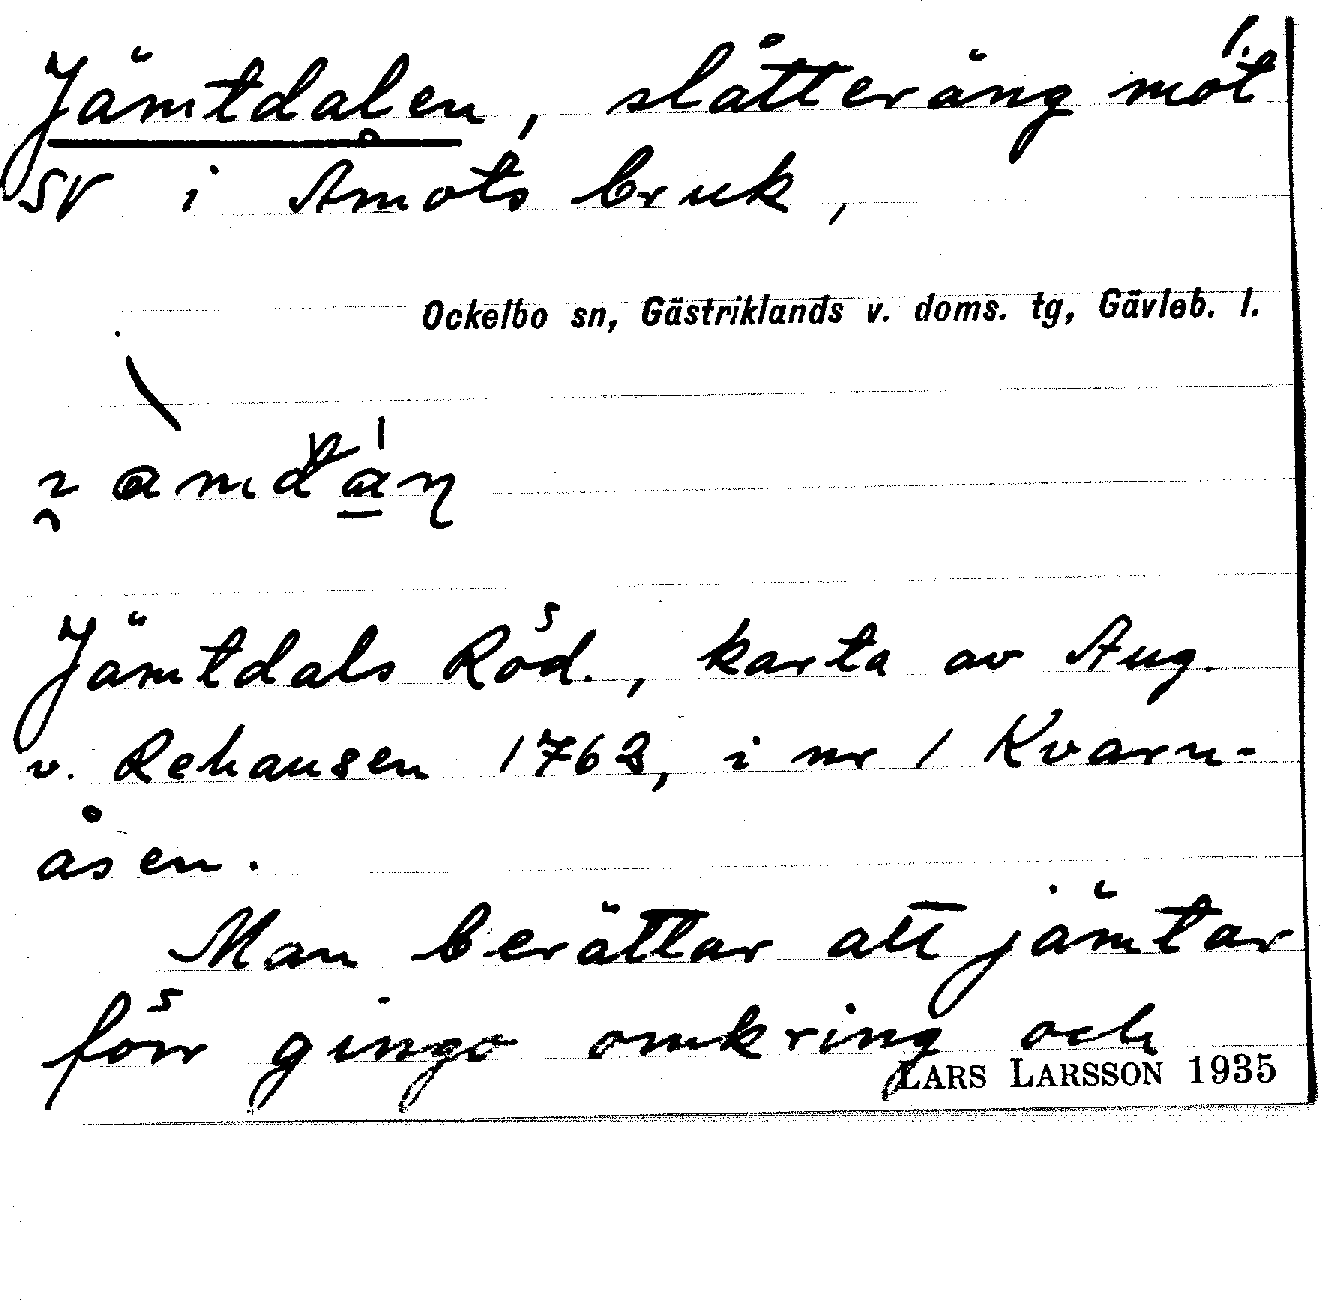 1.
Jämtdalen, slåtteräng mot
SV i Åmots bruk,
Ockelbo sn, Gästriklands v. doms. tg, Gävleb. l.
Jämtdals Röd., karta av Aug.
v. Rehausen 1762, i nr 1 Kvarn-
åsen.
Man berättar att jämtar
förr gingo omkring och
LARS LARSSON 1935